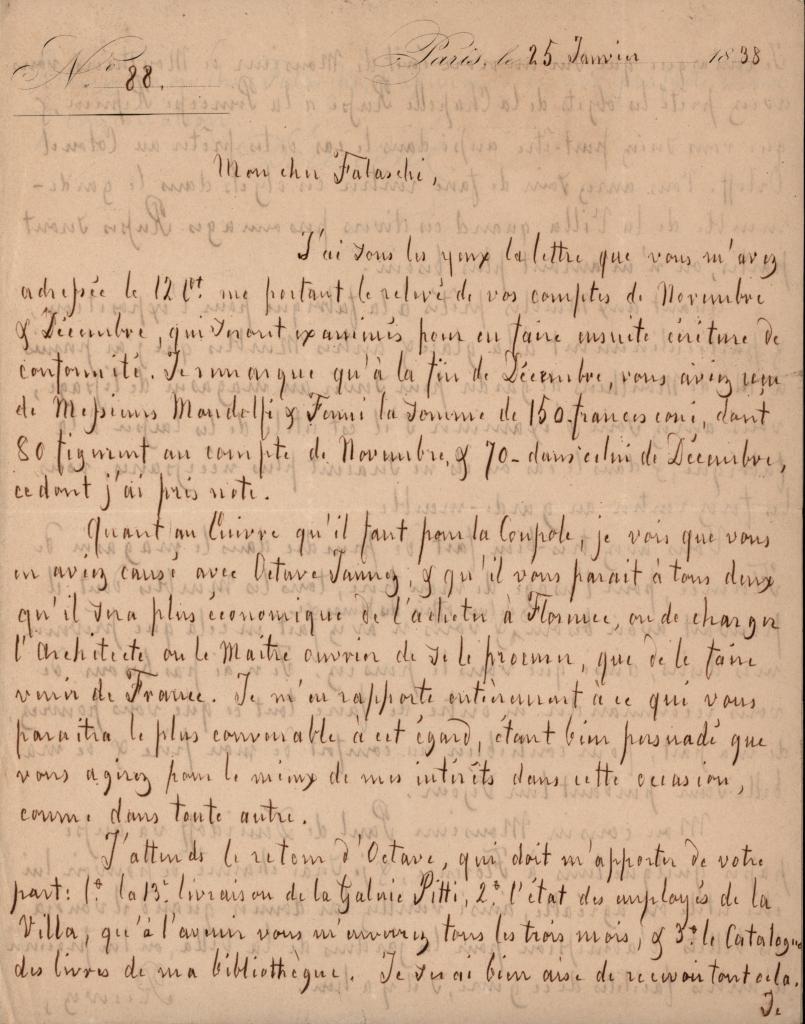 Nº 88.
Paris, le 25 Janvier 1838
Mon cher Falaschi,
J'ai sous les yeux la lettre que vous m'avez
adressée le 12 Ct. me portant le relevé de vos comptes de Novembre
& Décembre, qui seront examinés pour en faire ensuite écriture de
conformité. Je remarque qu'à la fin de Décembre, vous aviez reçu
de Messieurs Mondolfi & Fermi la somme de 150 francesconi, dont
80 figurent au compte de Novembre, & 70 - dans celui de Décembre,
ce dont j'ai pris note.
Quant au Cuivre qu'il faut pour la Coupole, je vois que vous
en aviez causé avec Octave Jannez, & qu'il vous parait à tous deux
qu'il sera plus économique de l'acheter à Florence, ou de charger
l'Architecte ou le Maître ouvrier de se le procurer, que de le faire
venir de France. Je m'en rapporte entièrement à ce qui vous
paraitra le plus convenable à cet égard, étant bien persuadé que
vous agirez pour le mieux de mes intérêts dans cette occasion,
comme dans toute autre.
J'attends le retour d'Octave, qui doit m'apporter de votre
part: 1º la 13e livraison de la Galerie Pitti, 2º l'état des employés de la
Villa, qu'à l'avenir vous m'enverrez tous les trois mois, & 3º le Catalogue
des livres de ma bibliothèque. Je serai bien aise de recevoir tout cela.
Je